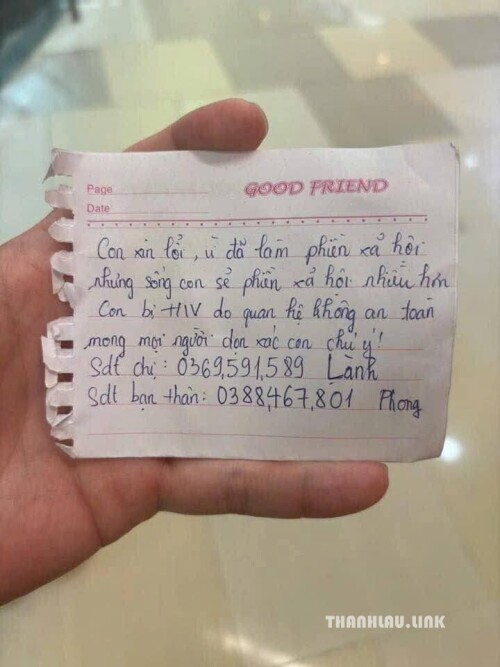 Page
GOOD FRIEND
Date
Con xin lổi, vì đã làm phiền xả hôi
nhưng sống con sẻ phiền xả hôi nhiều hơn
Con bi HIV do quan hệ không an toàn
mong mọi người dọn xác con chú ý!
Sdt chị: 0369,591,589 Lành
Sdt bạn thân: 0388,467,801 Phong
THANHLAU.LINK